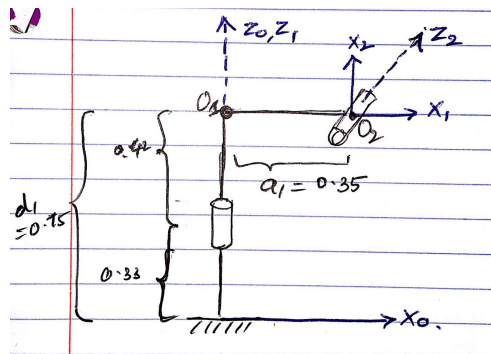 Z0, Z1
X2
Z2
O1
X1
O2
0.42
a1 = 0.35
d1
=0.75
0.33
X0.